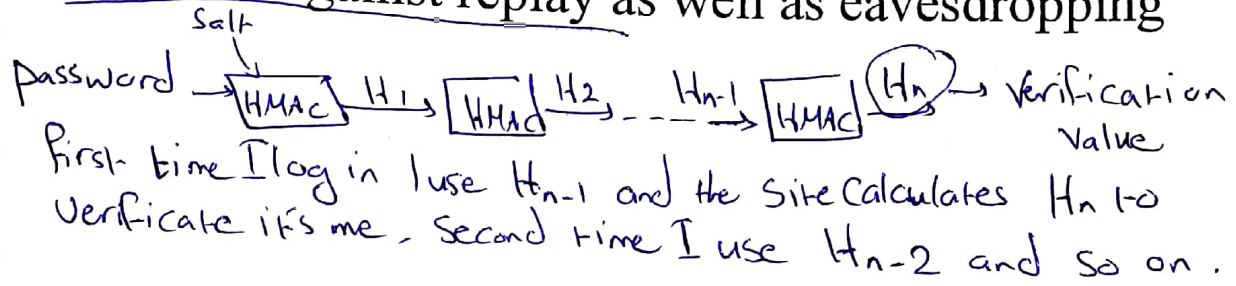 against replay as well as eavesdropping
Salt
password → HMAC H1 → HMAC H2 → - - - - Hn-1 → HMAC → Hn → Verification
Value
first time I log in I use Hn-1 and the Site Calculates Hn to
Verificate it's me, Second time I use Hn-2 and so on.